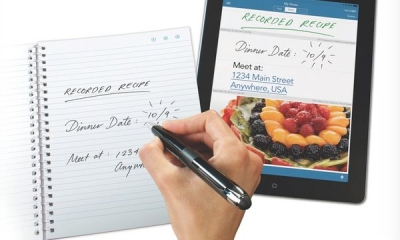 RECORDED RECIPE
Dinner Date: 10/9
Meet at: 1234
Anywhere
RECORDED RECIPE
Dinner Date: 10/9
Meet at:
1234 Main Street
Anywhere, USA